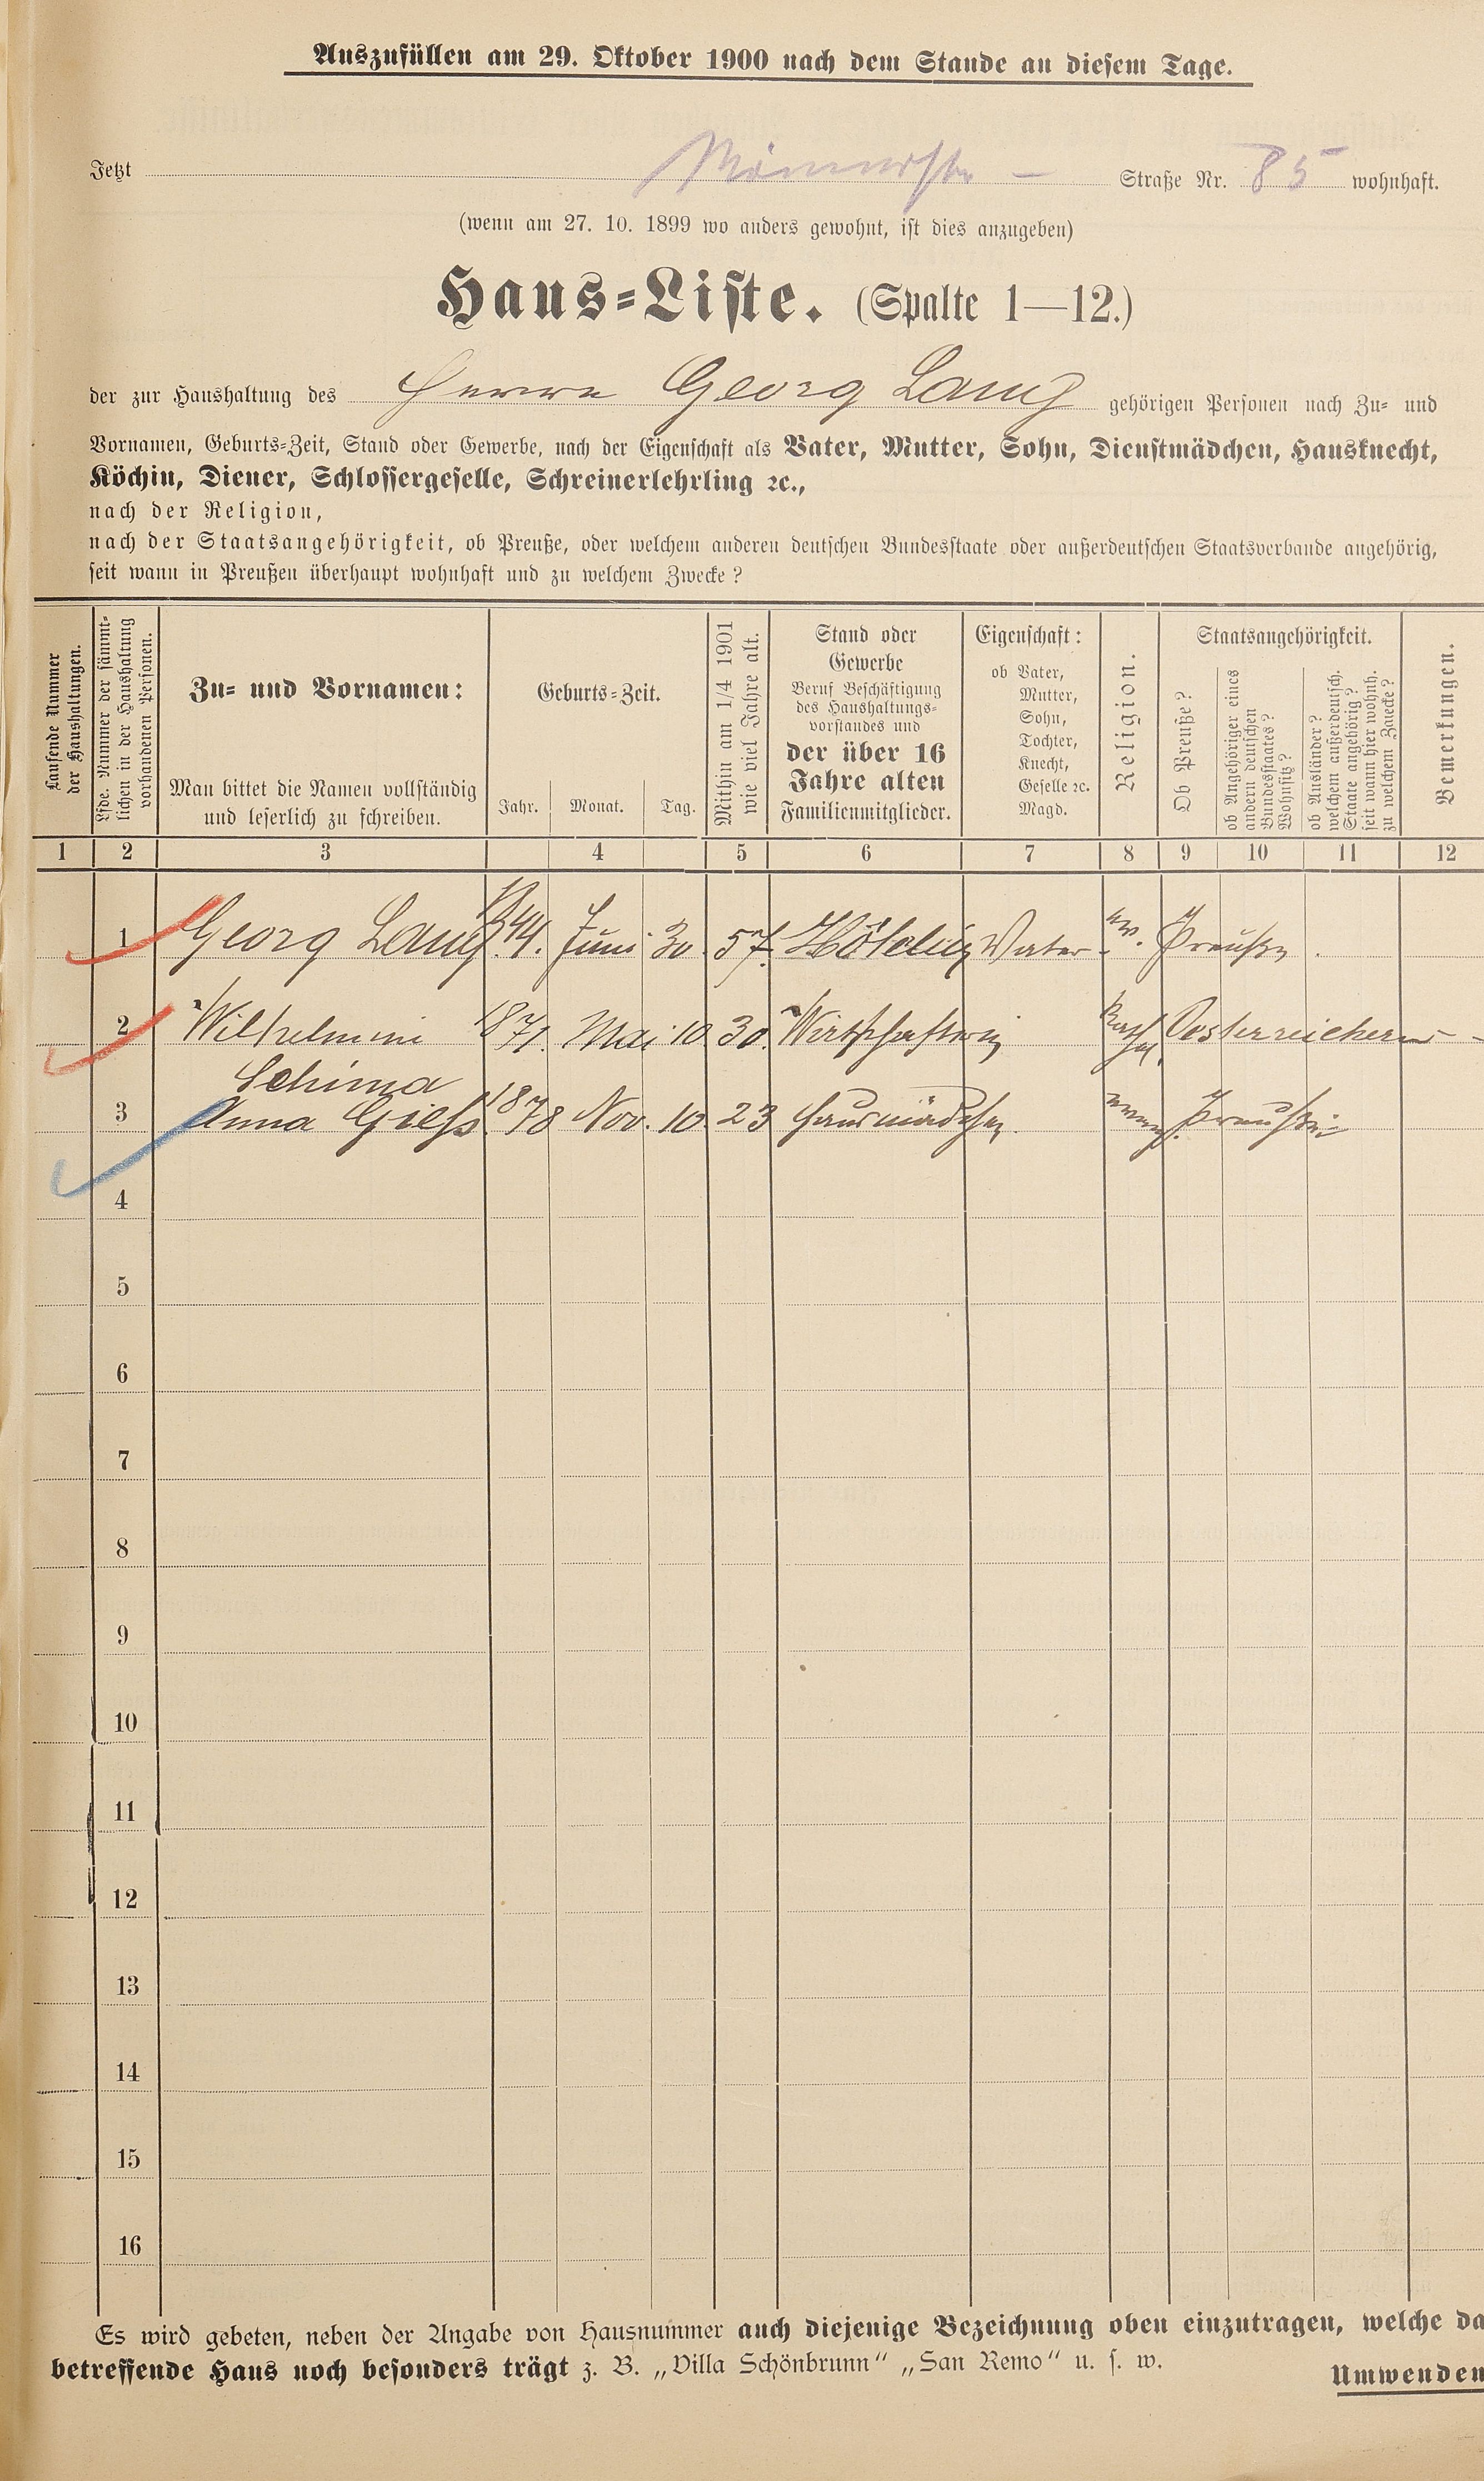 Auszufüllen am 29. Oktober 1900 nach dem Stande an diesem Tage.
Jetzt Straße Nr. 85 wohnhaft.
(wenn am 27. 10. 1899 wo anders gewohnt, ist dies anzugeben)
Haus-Liste. (Spalte 1—12.)
der zur Haushaltung des Herrn Georg Lang gehörigen Personen nach Zu- und
Vornamen, Geburts-Zeit, Stand oder Gewerbe, nach der Eigenschaft als Vater, Mutter, Sohn, Dienstmädchen, Hausknecht,
Köchin, Diener, Schlossergeselle, Schreinerlehrling ꝛc.,
nach der Religion,
nach der Staatsangehörigkeit, ob Preuße, oder welchem anderen deutschen Bundesstaate oder außerdeutschen Staatsverbande angehörig,
seit wann in Preußen überhaupt wohnhaft und zu welchem Zwecke?
Laufende Nummer
der Haushaltungen.
Lfde. Nummer der sämmt-
lichen in der Haushaltung
vorhandenen Personen.
Zu- und Vornamen:
Man bittet die Namen vollständig
und leserlich zu schreiben.
Geburts-Zeit.
Jahr. Monat. Tag.
Mithin am 1/4 1901
wie viel Jahre alt.
Stand oder
Gewerbe
Beruf Beschäftigung
des Haushaltungs-
vorstandes und
der über 16
Jahre alten
Familienmitglieder.
Eigenschaft:
ob Vater,
Mutter,
Sohn,
Tochter,
Knecht,
Geselle ꝛc.
Magd.
Religion.
Staatsangehörigkeit.
Ob Preuße?
ob Angehöriger eines
andern deutschen
Bundesstaates?
Wohnsitz?
ob Ausländer?
welchem außerdeutsch.
Staate angehörig?
seit wann hier wohnh.
zu welchem Zwecke?
Bemerkungen.
1 2 3 4 5 6 7 8 9 10 11 12
1 Georg Lang 1844. Juni 30. 57. Vater ev. Preuße
2 Wilhelmine 1871. Mai 10. 30. Wirthschafterin Kath. Oesterreicherin
Schima
3 Anna Gieß. 1878 Nov. 10. 23 Hausmädchen evang. Preußin
4
5
6
7
8
9
10
11
12
13
14
15
16
Es wird gebeten, neben der Angabe von Hausnummer auch diejenige Bezeichnung oben einzutragen, welche da
betreffende Haus noch besonders trägt z. B. „Villa Schönbrunn" „San Remo" u. s. w.
Umwenden